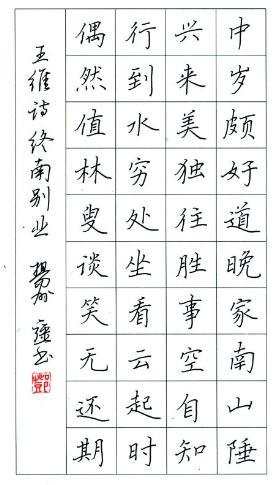 中岁颇好道晚家南山陲
兴来美独往胜事空自知
行到水穷处坐看云起时
偶然值林叟谈笑无还期
王维诗终南别业 疆书